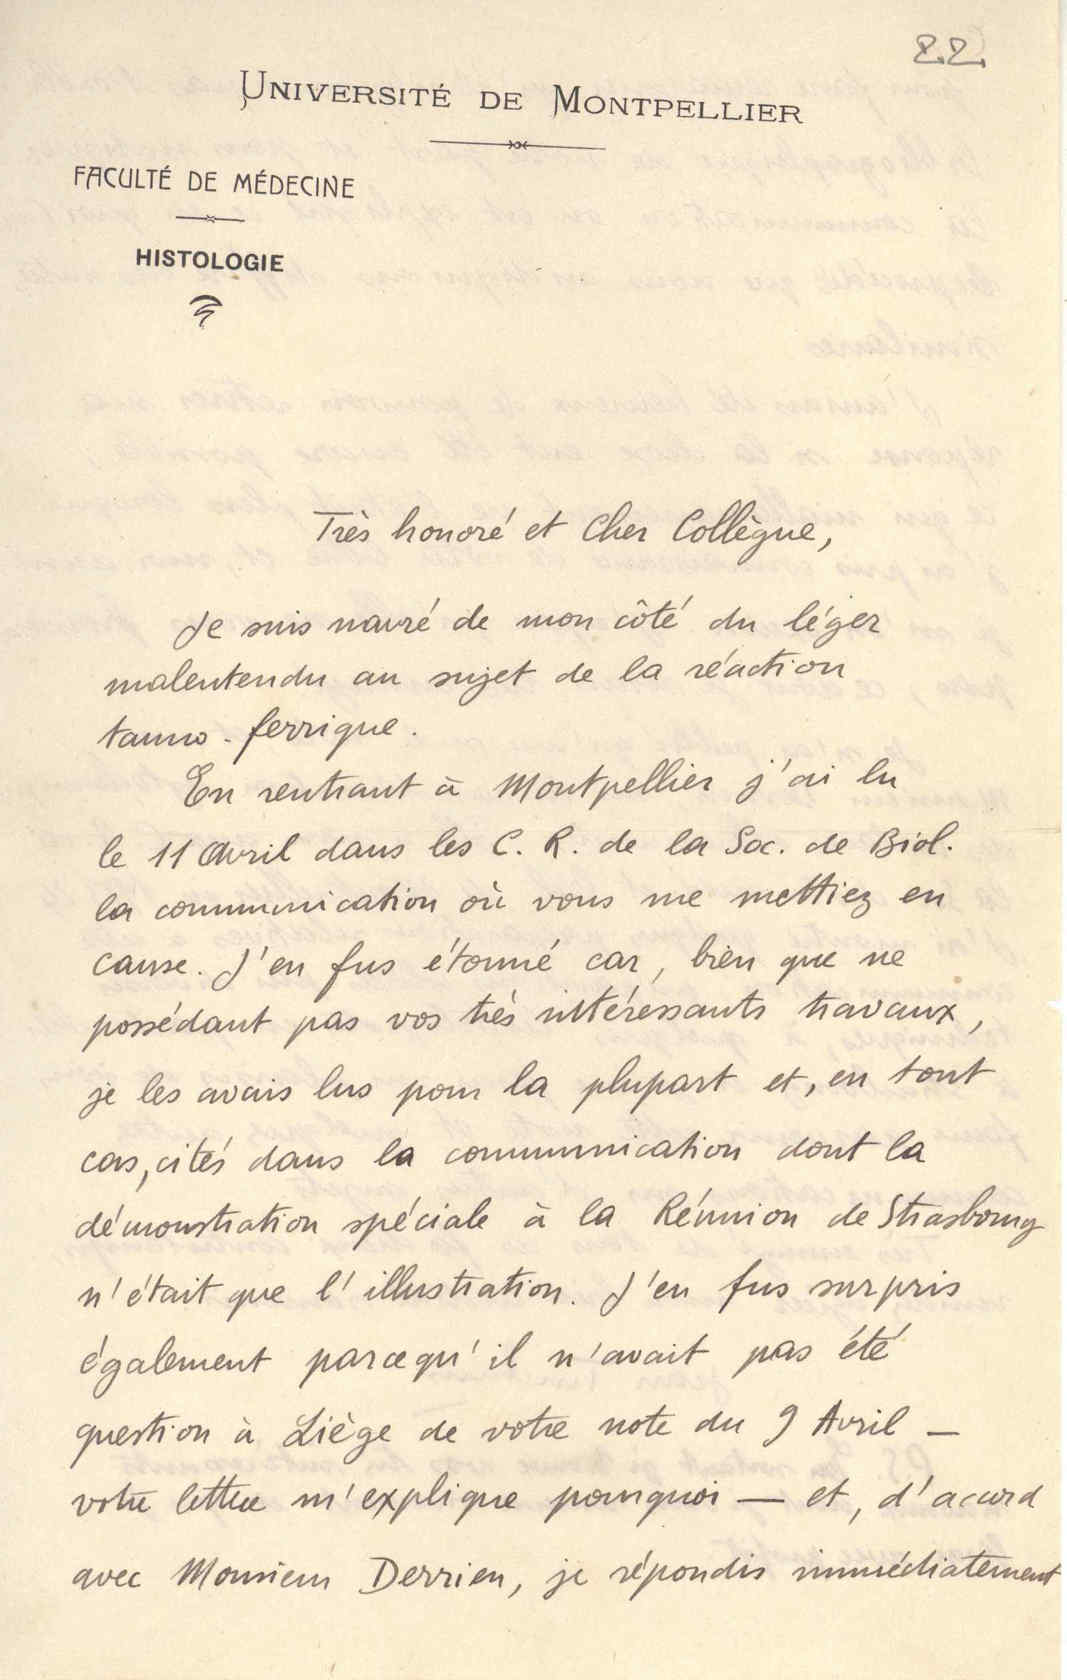 22
UNIVERSITÉ DE MONTPELLIER
FACULTÉ DE MÉDECINE
HISTOLOGIE
Très honoré et Cher Collègue,
Je suis navré de mon côté du léger
malentendu au sujet de la réaction
tanno-ferrique.
En rentrant à Montpellier j'ai lu
le 11 Avril dans les C. R. de la Soc. de Biol.
la communication où vous me mettiez en
cause. J'en fus étonné car, bien que ne
possédant pas vos très intéressants travaux,
je les avais lus pour la plupart et, en tout
cas, cités dans la communication dont la
démonstration spéciale à la Réunion de Strasbourg
n'était que l'illustration. J'en fus surpris
également parcequ'il n'avait pas été
question à Liège de votre note du 9 Avril —
votre lettre m'explique pourquoi — et, d'accord
avec Monsieur Derrien, je répondis immédiatement